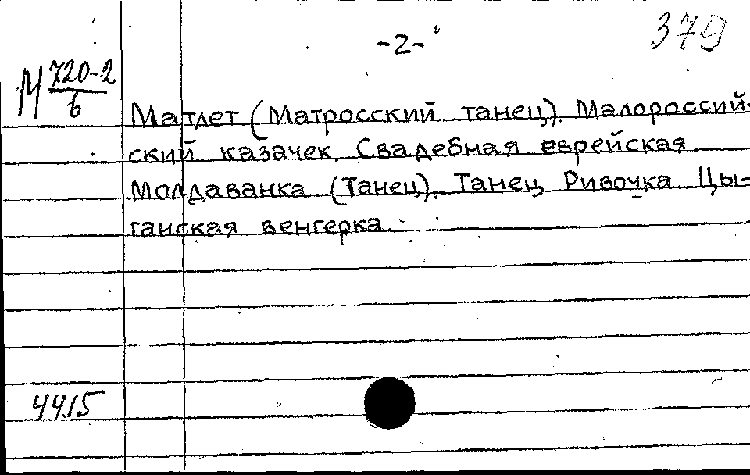 -2-
379
М 720-2
6
Матлет (Матросский танец). Малороссий-
ский казачек. Свадебная еврейская
Молдаванка (Танец). Танец Ривочка. Цы-
ганская венгерка.
4415